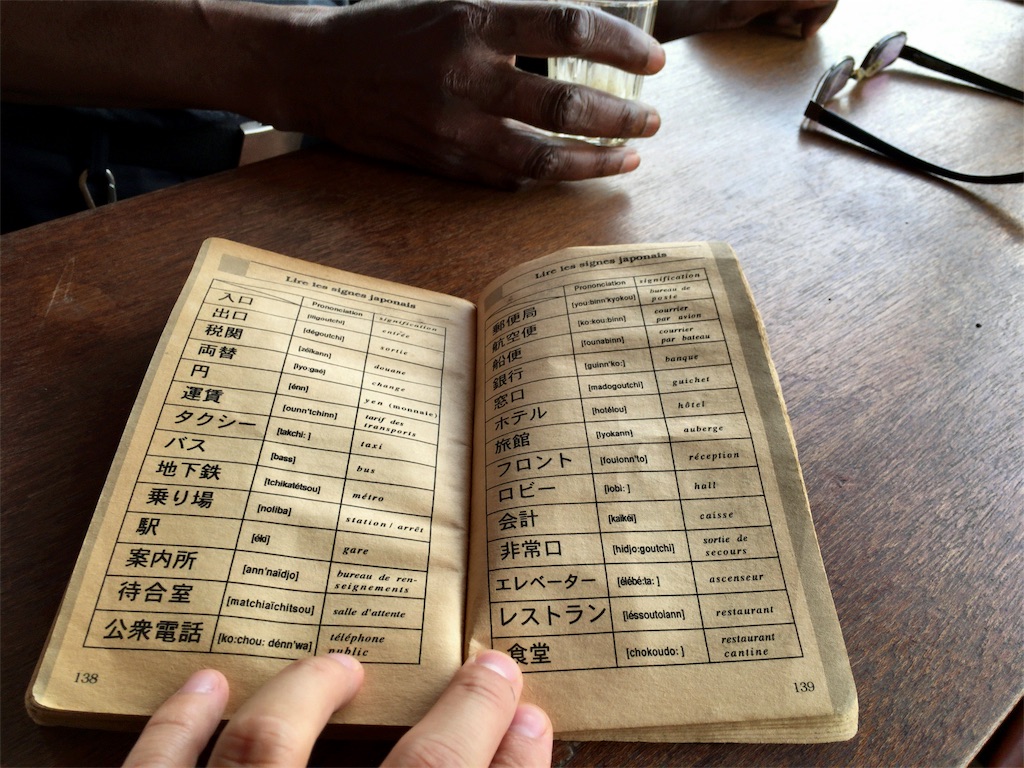 Lire les signes japonais
Prononciation signification
入口 [iligoutchi] entrée
出口 [dégoutchi] sortie
税関 [zéikann] douane
両替 [lyo:gaé] change
円 [énn] yen (monnaie)
運賃 [ounn'tchinn] tarif des
transports
タクシー [takchi: ] taxi
バス [bass] bus
地下鉄 [tchikatétsou] métro
乗り場 [noliba] station / arrêt
駅 [éki] gare
案内所 [ann'naïdjo] bureau de ren-
seignements
待合室 [matchiaïchitsou] salle d'attente
公衆電話 [ko:chou: dénn'wa] téléphone
public
138
Lire les signes japonais
Prononciation signification
郵便局 [you:binn'kyokou] bureau de
poste
航空便 [ko:kou:binn] courrier
par avion
船便 [founabinn] courrier
par bateau
銀行 [guinn'ko:] banque
窓口 [madogoutchi] guichet
ホテル [hotélou] hôtel
旅館 [lyokann] auberge
フロント [foulonn'to] réception
ロビー [lobi: ] hall
会計 [kaïkéi] caisse
非常口 [hidjo:goutchi] sortie de
secours
エレベーター [élébé:ta: ] ascenseur
レストラン [léssoutolann] restaurant
食堂 [chokoudo: ] restaurant
cantine
139